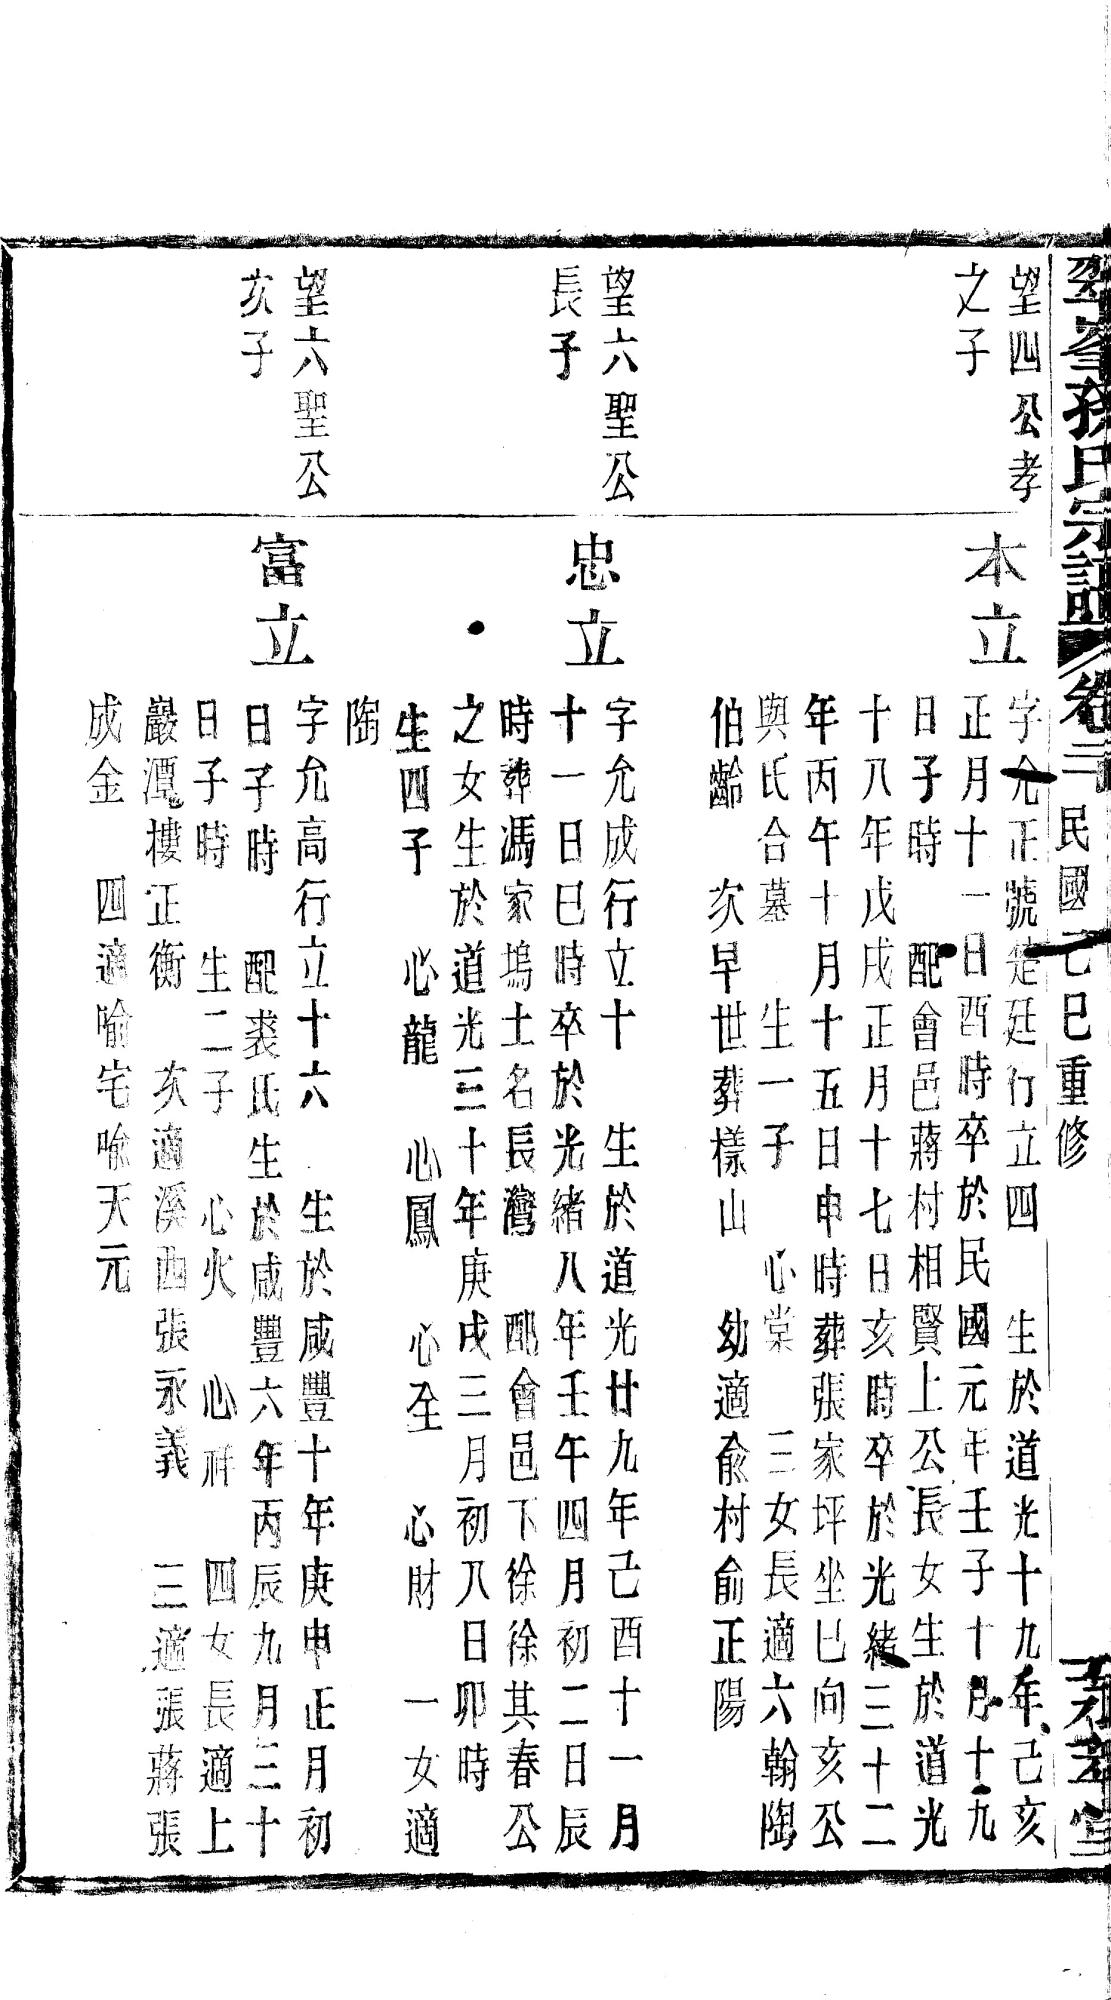 孫氏宗譜 卷二 民國己巳重修
望四公孝
之子
本立
字允正號楚廷行立四 生於道光十九年己亥
正月十一日酉時卒於民國元年壬子十月十九
日子時 配會邑蔣村相賢上公長女生於道光
十八年戊戌正月十七日亥時卒於光緒三十二
年丙午十月十五日申時葬張家坪坐巳向亥公
與氏合墓 生一子 心棠 三女長適六翰陶
伯齡 次早世葬樣山 幼適俞村俞正陽
望六聖公
長子
忠立
字允成行立十 生於道光廿九年己酉十一月
十一日巳時卒於光緒八年壬午四月初二日辰
時葬馮家塢土名長灣 配會邑下徐徐其春公
之女生於道光三十年庚戌三月初八日卯時
生四子 心龍 心鳳 心至 心財 一女適
陶
望六聖公
次子
富立
字允高行立十六 生於咸豐十年庚申正月初
日子時 配裘氏生於咸豐六年丙辰九月三十
日子時 生二子 心火 心祥 四女長適上
巖潭樓正衡 次適溪西張永義 三適張蔣張
成金 四適喻宅喻天元